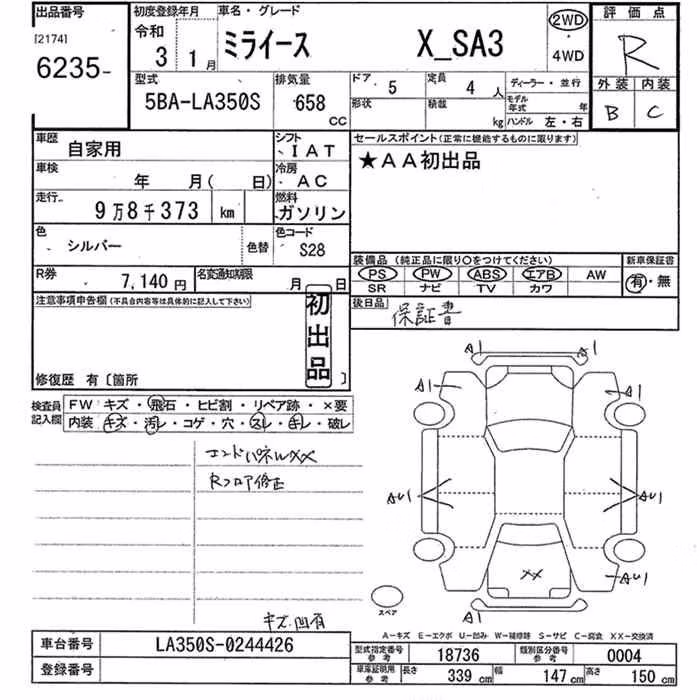 出品番号
[2174]
6235-
初度登録年月
令和
3 1月
車名・グレード
ミライース X_SA3
2WD
4WD
評価点
R
外装 内装
B C
型式
5BA-LA350S
排気量
658 CC
ドア 5
定員 4 人
形状
積載 kg
ディーラー・並行
モデル年式 年
ハンドル 左・右
車歴 自家用
シフト IAT
車検 年 月( 日)
冷房 AC
走行 9万8千373 km
燃料 ガソリン
色 シルバー 色替
色コード S28
R券 7,140円
名変通知期限 月 日
セールスポイント(正常に機能するものに限ります)
★AA初出品
装備品 (純正品に限り○をつけてください)
新車保証書
PS PW ABS エアB AW
SR ナビ TV カワ
有・無
後日品 保証書
注意事項申告欄(不具合内容等は具体的に記入して下さい)
初出品
修復歴 有〔箇所 〕
検査員記入欄
FW キズ・飛石・ヒビ割・リペア跡・×要
内装 キズ・汚レ・コゲ・穴・スレ・キレ・破レ
エンドパネルWXX
Rフロア修正
キズ凹有
A1 A1
A1 A1
AU1 AU1
XX
AU1
A1
スペア
A-キズ E-エクボ U-凹み W-補修跡 S-サビ C-腐食 XX-交換済
車台番号 LA350S-0244426
登録番号
型式指定番号参考 18736
類別区分番号参考 0004
車庫証明用参考
長さ 339 cm
幅 147 cm
高さ 150 cm